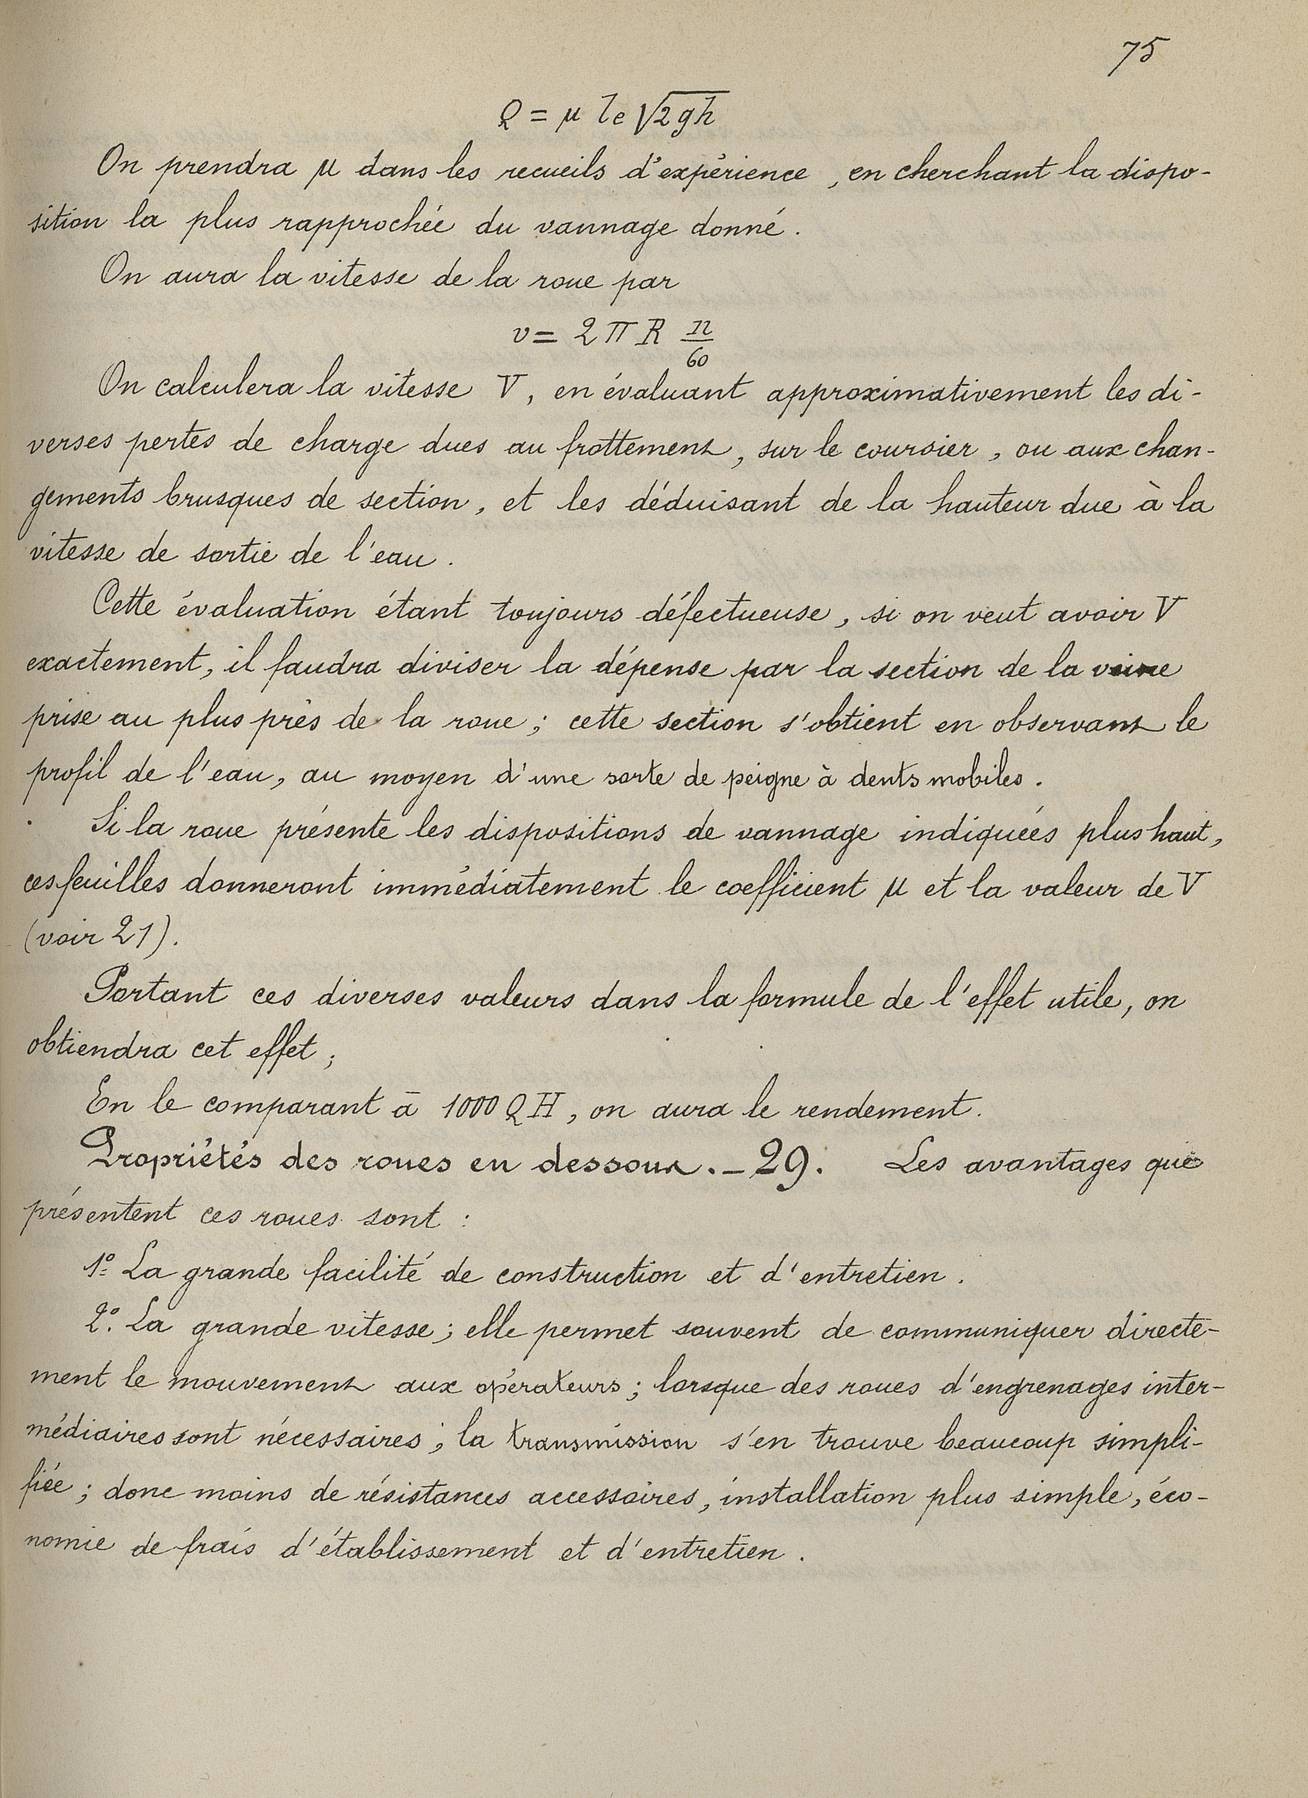 75
Q = μ le √2gh
On prendra μ dans les recueils d'expérience, en cherchant la dispo-
sition la plus rapprochée du vannage donné.
On aura la vitesse de la roue par
v = 2 π R n/60
On calculera la vitesse V, en évaluant approximativement les di-
verses pertes de charge dues au frottement, sur le coursier, ou aux chan-
gements brusques de section, et les déduisant de la hauteur due à la
vitesse de sortie de l'eau.
Cette évaluation étant toujours défectueuse, si on veut avoir V
exactement, il faudra diviser la dépense par la section de la veine
prise au plus près de la roue; cette section s'obtient en observant le
profil de l'eau, au moyen d'une sorte de peigne à dents mobiles.
Si la roue présente les dispositions de vannage indiquées plus haut,
ces feuilles donneront immédiatement le coefficient μ et la valeur de V
(voir 21).
Portant ces diverses valeurs dans la formule de l'effet utile, on
obtiendra cet effet;
En le comparant à 1000 Q H, on aura le rendement.
Propriétés des roues en dessous. – 29. Les avantages que
présentent ces roues sont :
1º La grande facilité de construction et d'entretien.
2º. La grande vitesse; elle permet souvent de communiquer directe-
ment le mouvement aux opérateurs; lorsque des roues d'engrenages inter-
médiaires sont nécessaires; la transmission s'en trouve beaucoup simpli-
fiée; donc moins de résistances accessoires, installation plus simple, éco-
nomie de frais d'établissement et d'entretien.